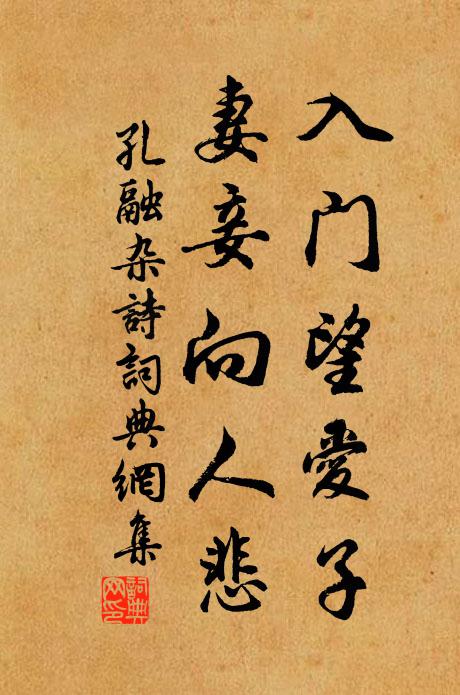 入门望愛子
妻妾向人悲
孔融杂詩詞典網集
詞典
网印